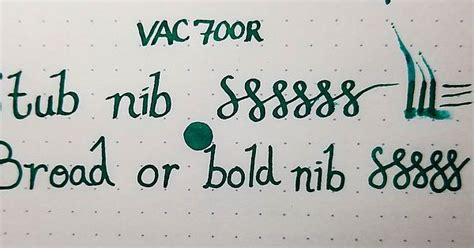 VAC 700R
Stub nib
Broad or bold nib